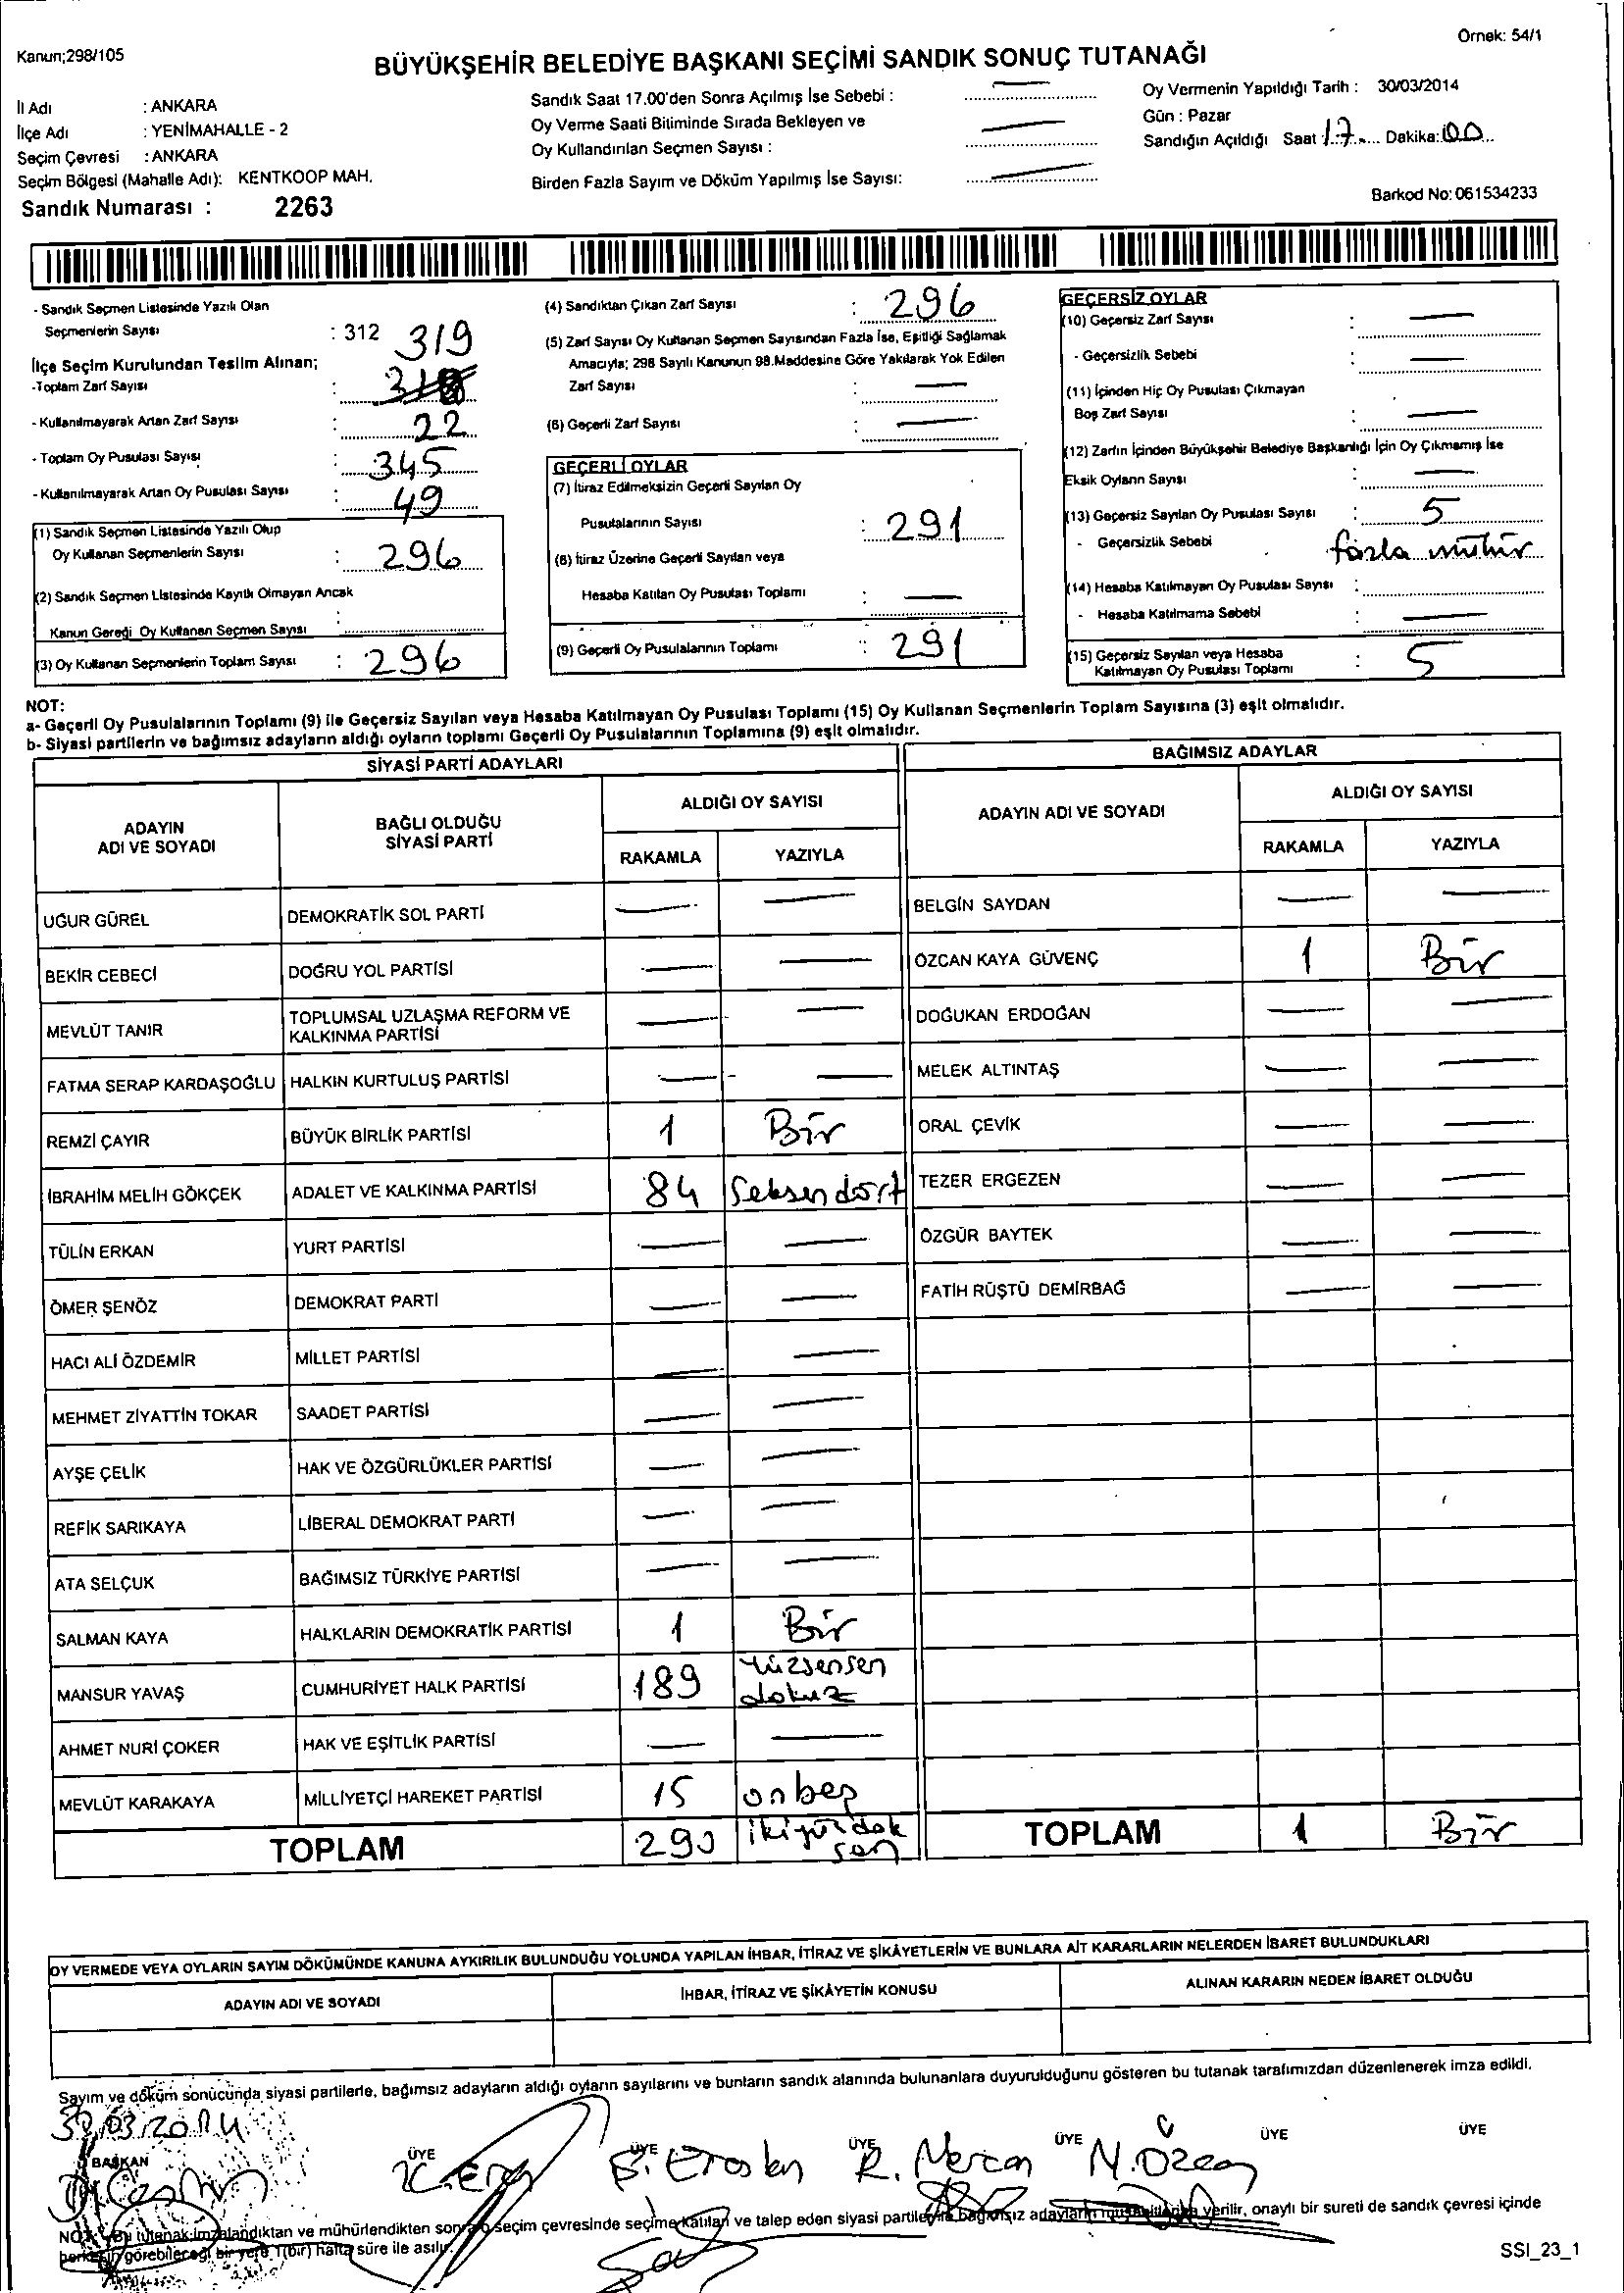 Kanun;298/105
Örnek: 54/1
BÜYÜKŞEHİR BELEDİYE BAŞKANI SEÇİMİ SANDIK SONUÇ TUTANAĞI
İl Adı : ANKARA
İlçe Adı : YENİMAHALLE - 2
Seçim Çevresi : ANKARA
Seçim Bölgesi (Mahalle Adı): KENTKOOP MAH.
Sandık Numarası : 2263
Sandık Saat 17.00'den Sonra Açılmış İse Sebebi :
Oy Verme Saati Bitiminde Sırada Bekleyen ve
Oy Kullandırılan Seçmen Sayısı :
Birden Fazla Sayım ve Döküm Yapılmış İse Sayısı:
Oy Vermenin Yapıldığı Tarih : 30/03/2014
Gün : Pazar
Sandığın Açıldığı Saat 17 Dakika: 00
Barkod No: 061534233
- Sandık Seçmen Listesinde Yazılı Olan
Seçmenlerin Sayısı : 312 319
İlçe Seçim Kurulundan Teslim Alınan;
-Toplam Zarf Sayısı :
- Kullanılmayarak Artan Zarf Sayısı : 22
- Toplam Oy Pusulası Sayısı : 345
- Kullanılmayarak Artan Oy Pusulası Sayısı : 49
(1) Sandık Seçmen Listesinde Yazılı Olup
Oy Kullanan Seçmenlerin Sayısı : 296
(2) Sandık Seçmen Listesinde Kayıtlı Olmayan Ancak
Kanun Gereği Oy Kullanan Seçmen Sayısı :
(3) Oy Kullanan Seçmenlerin Toplam Sayısı : 296
(4) Sandıktan Çıkan Zarf Sayısı : 296
(5) Zarf Sayısı Oy Kullanan Seçmen Sayısından Fazla İse, Eşitliği Sağlamak
Amacıyla; 298 Sayılı Kanunun 98.Maddesine Göre Yakılarak Yok Edilen
Zarf Sayısı : —
(6) Geçerli Zarf Sayısı : —
GEÇERLİ OYLAR
(7) İtiraz Edilmeksizin Geçerli Sayılan Oy
Pusulalarının Sayısı : 291
(8) İtiraz Üzerine Geçerli Sayılan veya
Hesaba Katılan Oy Pusulası Toplamı : —
(9) Geçerli Oy Pusulalarının Toplamı : 291
GEÇERSİZ OYLAR
(10) Geçersiz Zarf Sayısı : —
- Geçersizlik Sebebi : —
(11) İçinden Hiç Oy Pusulası Çıkmayan
Boş Zarf Sayısı : —
(12) Zarfın İçinden Büyükşehir Belediye Başkanlığı İçin Oy Çıkmamış İse
Eksik Oyların Sayısı : —
(13) Geçersiz Sayılan Oy Pusulası Sayısı : 5
- Geçersizlik Sebebi fazla mühür
(14) Hesaba Katılmayan Oy Pusulası Sayısı :
- Hesaba Katılmama Sebebi : —
(15) Geçersiz Sayılan veya Hesaba
Katılmayan Oy Pusulası Toplamı : 5
NOT:
a- Geçerli Oy Pusulalarının Toplamı (9) ile Geçersiz Sayılan veya Hesaba Katılmayan Oy Pusulası Toplamı (15) Oy Kullanan Seçmenlerin Toplam Sayısına (3) eşit olmalıdır.
b- Siyasi partilerin ve bağımsız adayların aldığı oyların toplamı Geçerli Oy Pusulalarının Toplamına (9) eşit olmalıdır.
SİYASİ PARTİ ADAYLARI
ADAYIN
ADI VE SOYADI
BAĞLI OLDUĞU
SİYASİ PARTİ
ALDIĞI OY SAYISI
RAKAMLA YAZIYLA
UĞUR GÜREL DEMOKRATİK SOL PARTİ — —
BEKİR CEBECİ DOĞRU YOL PARTİSİ — —
MEVLÜT TANIR TOPLUMSAL UZLAŞMA REFORM VE
KALKINMA PARTİSİ — —
FATMA SERAP KARDAŞOĞLU HALKIN KURTULUŞ PARTİSİ — —
REMZİ ÇAYIR BÜYÜK BİRLİK PARTİSİ 1 Bir
İBRAHİM MELİH GÖKÇEK ADALET VE KALKINMA PARTİSİ 84 Seksendört
TÜLİN ERKAN YURT PARTİSİ — —
ÖMER ŞENÖZ DEMOKRAT PARTİ — —
HACI ALİ ÖZDEMİR MİLLET PARTİSİ — —
MEHMET ZİYATTİN TOKAR SAADET PARTİSİ — —
AYŞE ÇELİK HAK VE ÖZGÜRLÜKLER PARTİSİ — —
REFİK SARIKAYA LİBERAL DEMOKRAT PARTİ — —
ATA SELÇUK BAĞIMSIZ TÜRKİYE PARTİSİ — —
SALMAN KAYA HALKLARIN DEMOKRATİK PARTİSİ 1 Bir
MANSUR YAVAŞ CUMHURİYET HALK PARTİSİ 189 Yüzsensen
dokuz
AHMET NURİ ÇOKER HAK VE EŞİTLİK PARTİSİ — —
MEVLÜT KARAKAYA MİLLİYETÇİ HAREKET PARTİSİ 15 onbeş
TOPLAM 290 ikiyüzdok
san
BAĞIMSIZ ADAYLAR
ADAYIN ADI VE SOYADI
ALDIĞI OY SAYISI
RAKAMLA YAZIYLA
BELGİN SAYDAN — —
ÖZCAN KAYA GÜVENÇ 1 Bir
DOĞUKAN ERDOĞAN — —
MELEK ALTINTAŞ — —
ORAL ÇEVİK — —
TEZER ERGEZEN — —
ÖZGÜR BAYTEK — —
FATİH RÜŞTÜ DEMİRBAĞ — —
TOPLAM 1 Bir
OY VERMEDE VEYA OYLARIN SAYIM DÖKÜMÜNDE KANUNA AYKIRILIK BULUNDUĞU YOLUNDA YAPILAN İHBAR, İTİRAZ VE ŞİKÂYETLERİN VE BUNLARA AİT KARARLARIN NELERDEN İBARET BULUNDUKLARI
ADAYIN ADI VE SOYADI İHBAR, İTİRAZ VE ŞİKÂYETİN KONUSU ALINAN KARARIN NEDEN İBARET OLDUĞU
Sayım ve döküm sonucunda siyasi partilerle, bağımsız adayların aldığı oyların sayılarını ve bunların sandık alanında bulunanlara duyurulduğunu gösteren bu tutanak tarafımızdan düzenlenerek imza edildi.
30/03/2014
BAŞKAN ÜYE ÜYE ÜYE ÜYE ÜYE ÜYE
R. Mercan N. Özcan
NOT: Bu tutanak imzalandıktan ve mühürlendikten sonra o seçim çevresinde seçime katılan ve talep eden siyasi partilerle bağımsız adayların müşahitlerine verilir, onaylı bir sureti de sandık çevresi içinde
herkesin görebileceği bir yere 1(bir) hafta süre ile asılır.
SSI_23_1